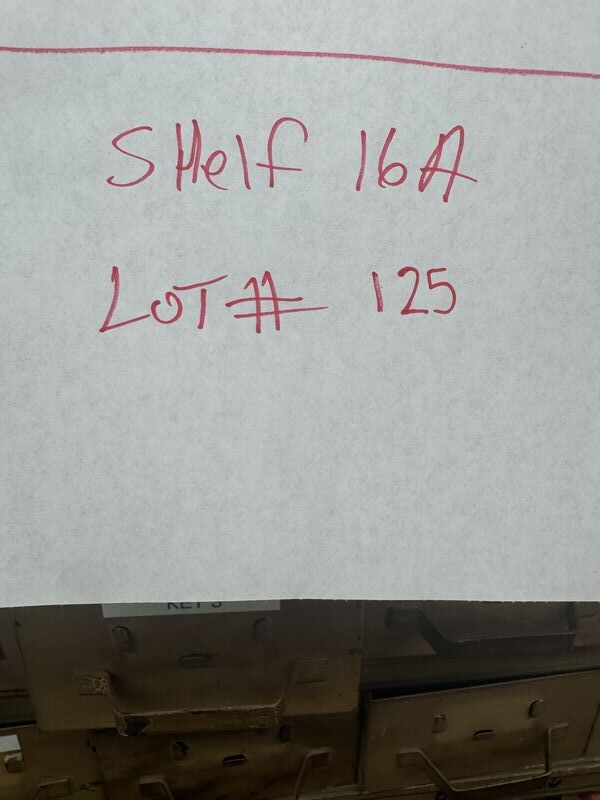 SHelf 16A
LOT# 125
KEYS